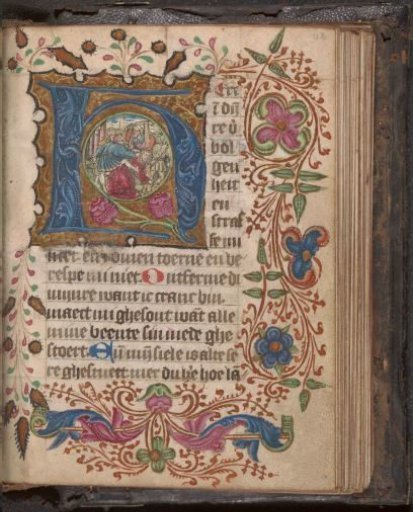 Ere
ī dīn
re v̄
bol
gen
heit
en
straf
fe mi
niet en̄ in dinen toerne en be
respe mi niet. Ontferme di
mijnre want ic cranc bin
maect mi ghesont want alle
mine beente sin mede ghe
stoert. En̄ mijn siele is alte se
re ghestoert mer du h̄e hoe lā